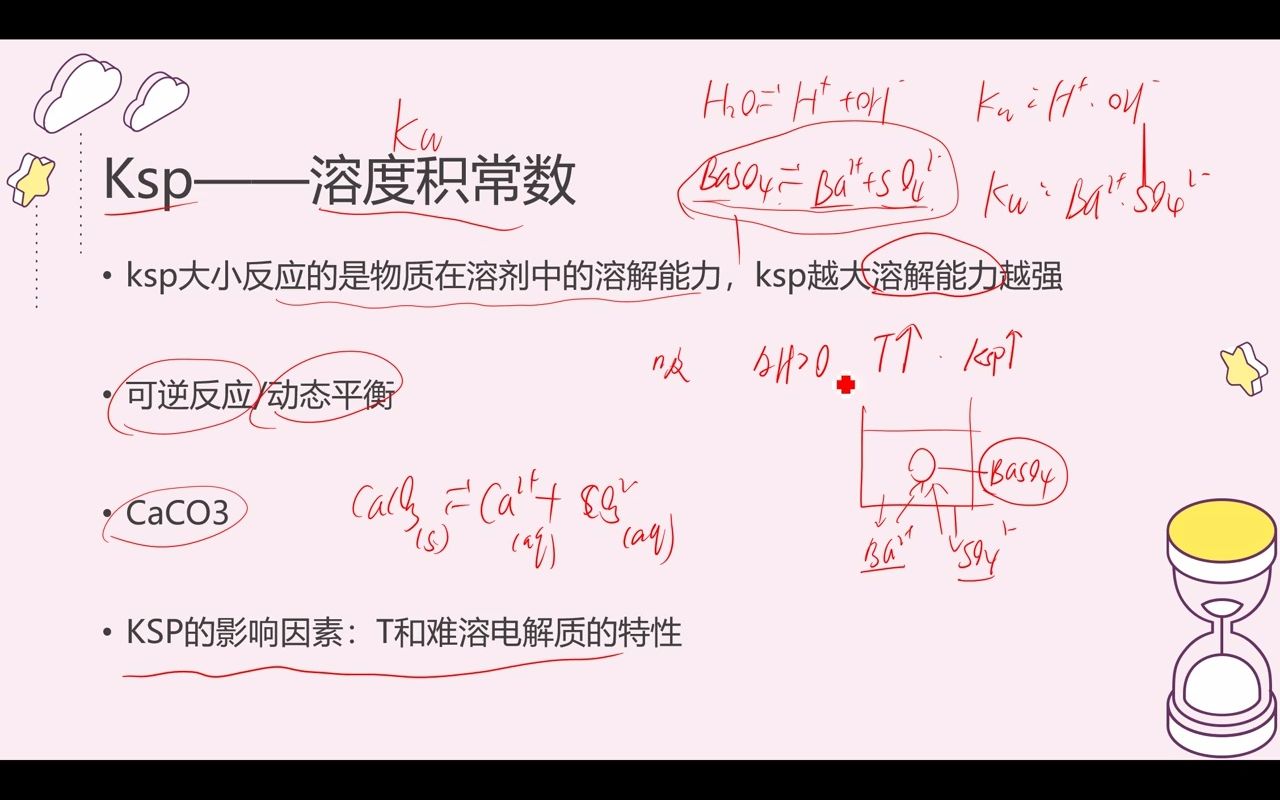 H₂O ⇌ H⁺ + OH⁻
Kw = H⁺·OH⁻
Kw
Ksp——溶度积常数
BaSO₄ ⇌ Ba²⁺ + SO₄²⁻
Kw = Ba²⁺·SO₄²⁻
• ksp大小反应的是物质在溶剂中的溶解能力，ksp越大溶解能力越强
吸 ΔH>0 T↑ · Ksp↑
• 可逆反应/动态平衡
BaSO₄
• CaCO3
CaCO₃(s) ⇌ Ca²⁺(aq) + CO₃²⁻(aq)
Ba²⁺ SO₄²⁻
• KSP的影响因素：T和难溶电解质的特性